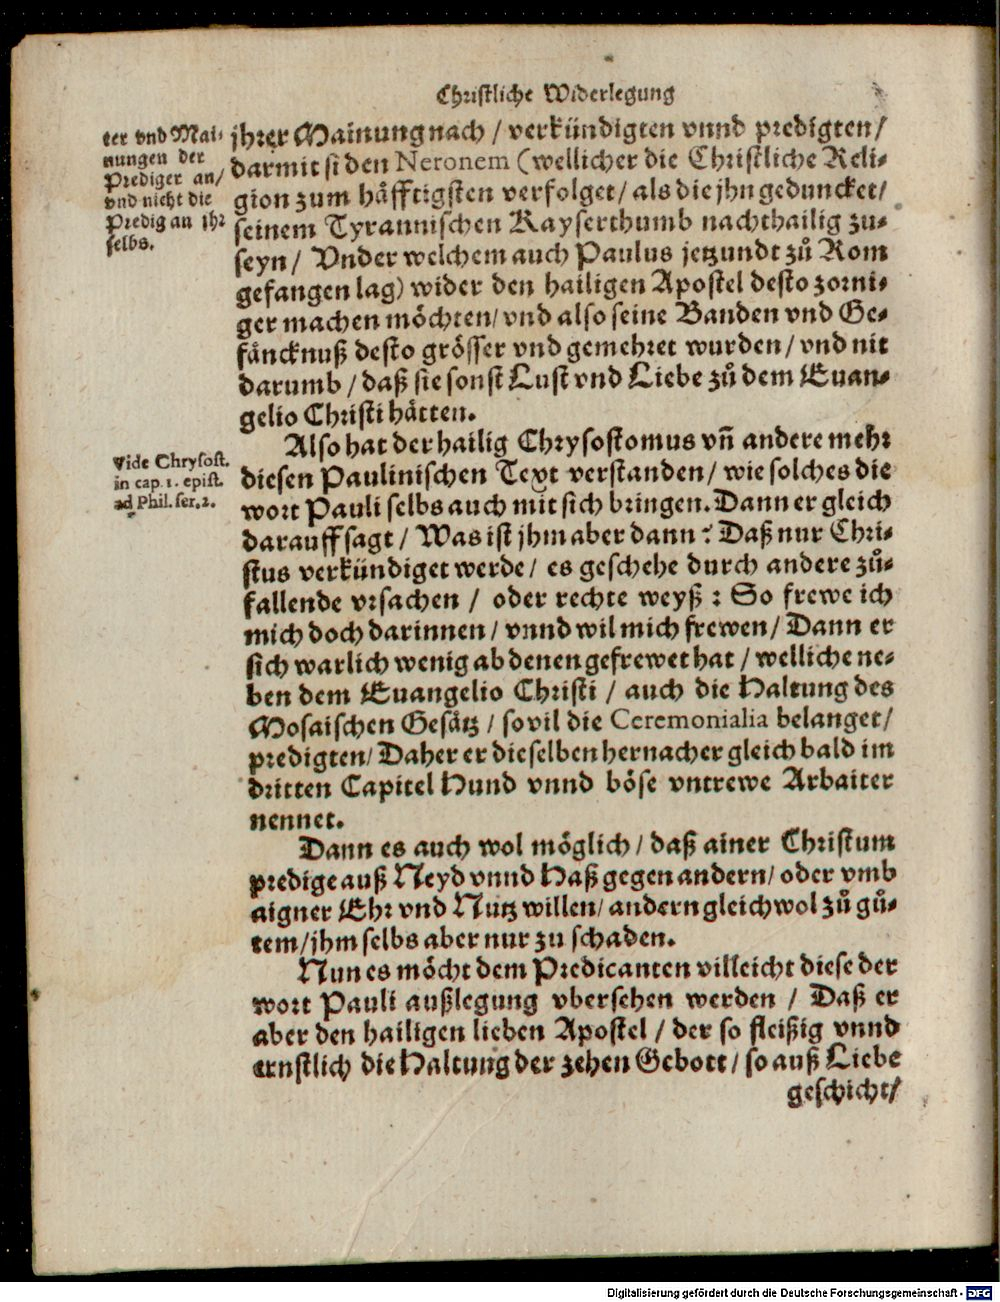 Christliche Widerlegung
ter vnd Mai-
nungen der
Prediger an/
vnd nicht die
Predig an jhr
selbs.
jhrer Mainung nach / verkündigten vnnd predigten/
darmit si den Neronem (wellicher die Christliche Reli-
gion zum häfftigsten verfolget / als die jhn geduncket/
seinem Tyrannischen Kayserthumb nachthailig zu-
seyn / Vnder welchem auch Paulus jetzundt zů Rom
gefangen lag) wider den hailigen Apostel desto zorni-
ger machen möchten/ vnd also seine Banden vnd Ge-
fäncknuß desto grösser vnd gemehret wurden / vnd nit
darumb / daß sie sonst Lust vnd Liebe zů dem Euan-
gelio Christi hätten.
Also hat der hailig Chrysostomus vñ andere mehr
Vide Chrysost.
in cap. 1. epist.
ad Phil. ser. 2.
diesen Paulinischen Text verstanden / wie solches die
wort Pauli selbs auch mit sich bringen. Dann er gleich
darauff sagt / Was ist jhm aber dann? Daß nur Chri-
stus verkündiget werde / es geschehe durch andere zů-
fallende vrsachen / oder rechte weyß : So frewe ich
mich doch darinnen / vnnd wil mich frewen / Dann er
sich warlich wenig ab denen gefrewet hat / welliche ne-
ben dem Euangelio Christi / auch die Haltung des
Mosaischen Gesätz / so vil die Ceremonialia belanget/
predigten/ Daher er dieselben hernacher gleich bald im
dritten Capitel Hund vnnd böse vntrewe Arbaiter
nennet.
Dann es auch wol möglich / daß ainer Christum
predige auß Neyd vnnd Haß gegen andern/ oder vmb
aigner Ehr vnd Nutz willen/ andern gleichwol zů gů-
tem/ jhm selbs aber nur zu schaden.
Nun es möcht dem Predicanten villeicht diese der
wort Pauli außlegung vbersehen werden / Daß er
aber den hailigen lieben Apostel / der so fleißig vnnd
ernstlich die Haltung der zehen Gebott / so auß Liebe
geschicht/
Digitalisierung gefördert durch die Deutsche Forschungsgemeinschaft - DFG